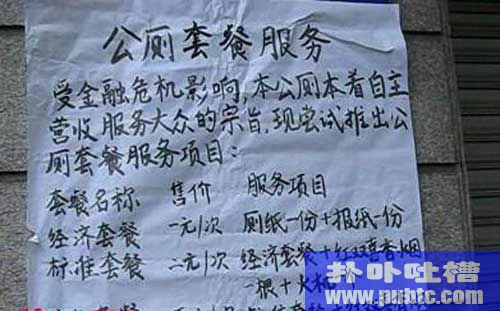 公厕套餐服务
受金融危机影响,本公厕本着自主
营收服务大众的宗旨,现尝试推出公
厕套餐服务项目:
套餐名称 售价 服务项目
经济套餐 一元/次 厕纸一份+报纸一份
标准套餐 二元/次 经济套餐+红双喜香烟
一根+火机
扑卟吐槽
www.pubtc.com